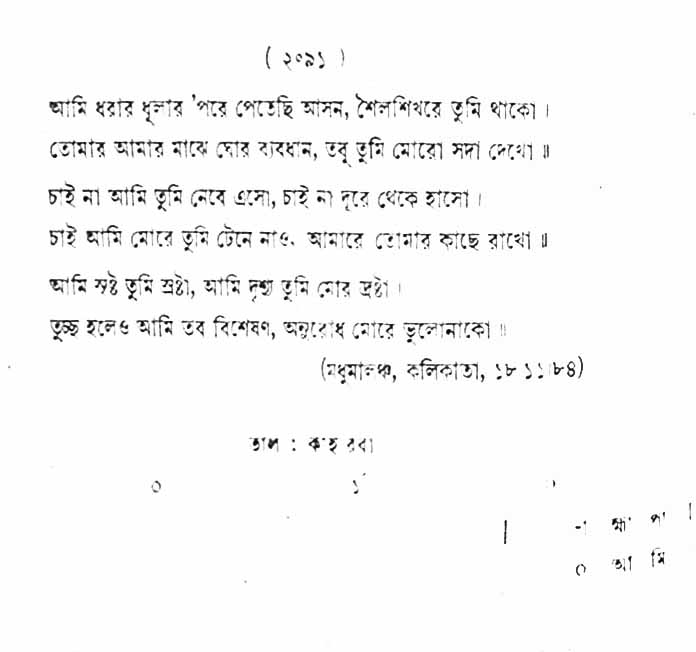 ( ২০৯১ )
আমি ধরার ধূলার 'পরে পেতেছি আসন, শৈলশিখরে তুমি থাকো ।
তোমার আমার মাঝে ঘোর ব্যবধান, তবু তুমি মোরো সদা দেখো ॥
চাই না আমি তুমি নেবে এসো, চাই না দূরে থেকে হাসো ।
চাই আমি মোরে তুমি টেনে নাও. আমারে তোমার কাছে রাখো ॥
আমি সৃষ্ট তুমি স্রষ্টা, আমি দৃশ্য তুমি মোর দ্রষ্টা ।
তুচ্ছ হলেও আমি তব বিশেষণ, অনুরোধ মোরে ভুলোনাকো ॥
(মধুমালঞ্চ, কলিকাতা, ১৮ ১১।৮৪)
তাল : কাহরবা
০ ১
| -া হ্মা পা |
০ আ মি